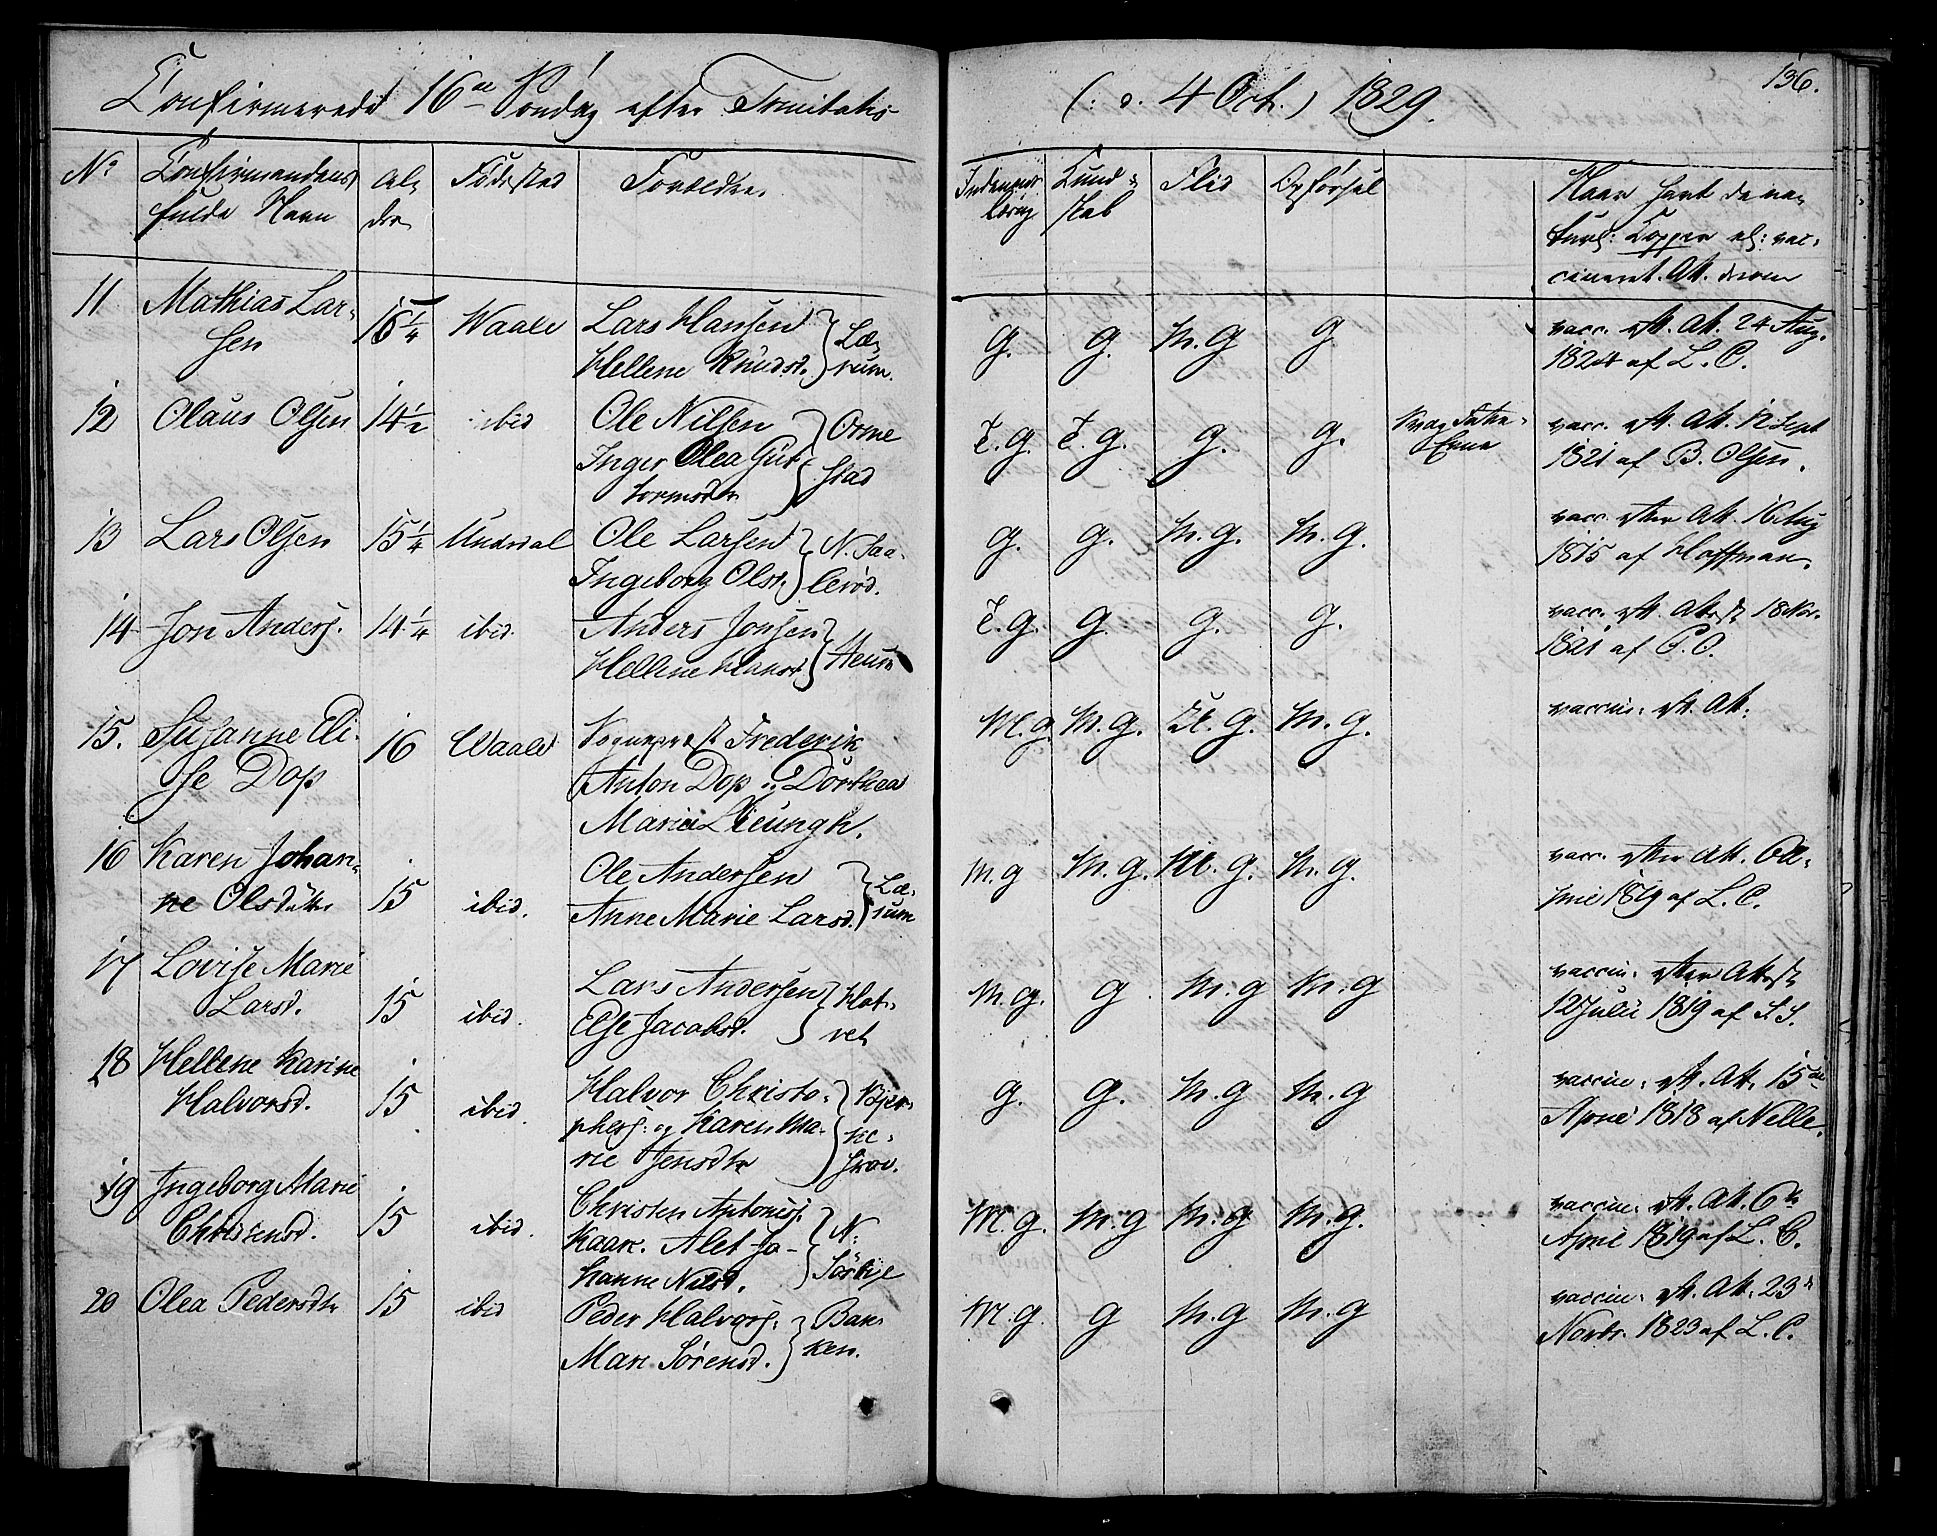 Confirmerede 16de Søndag efter Trinitatis (: d. 4 Oct. :) 1829.
136.
No
Confirmandens
fulde Navn
Al-
der
Fødested
Forældre.
Indenadslæsning
Kund-
skab
Flid
Opførsel
Naar havt de na-
turl: Kopper el: vac-
cineret. Att. derom
11 Mathias Lar-
sen
16 1/4 Waale
Lars Hansen
Hellene Knudsd. } Læ-
rum.
g. g. M. g g
vacc. eft. Att. 24 Aug.
af L. C.
12 Olaus Olsen 14 1/2 ibid
Ole Nilsen
Inger Olea Gut-
tormsdtr } Orme
stad
T. g. T. g. g. g.
Svag Fatte-
Evne
vacc. eft. Att. 12 Sept
1821 af B. Olsen.
13 Lars Olsen 15 1/4 Undrdal
Ole Larsen
Ingeborg Olsd. } N. Saa-
lerød.
g. g. M. g. M. g.
vacc. efter Att. 16 Aug
1815 af Hoffman.
14 Jon Anders. 14 1/4 ibid.
Anders Jonsen
Hellene Hansd } Heum
T. g. g. g. g.
vacc. eft. Attest 18 Nov.
1821 af C. O.
15. Susanne Eli-
se Dop
16 Waale
Sognepræst Frederik
Anton Dop og Dorthea
Maria Lieungh.
M. g. M. g. M. g.
vaccin: eft. Att:
16 Karen Johan-
ne Olsdatter
15 ibid.
Ole Andersen
Anne Marie Larsd. } Læ-
rum
M. g M. g. M. g. M. g.
vacc. efter Att.
1819 af L. C.
17 Lovise Marie
Larsd.
15 ibid.
Lars Andersen
Else Jacobsd. } Hot-
vet
M. g. g M. g M. g
vaccin: efter Attest
12 Julii 1819 af
18 Hellene Karine
Halvorsd.
15 ibid.
Halvor Christo-
phers: og Karen Ma-
rie Jensdtr } Bjer-
ke-
g. g. M. g M. g
vaccin: eft. Att. 15de
April 1818 af Nelle.
19 Ingeborg Marie
Christensd.
15 ibid.
Christen Antonisz.
Kaare. Alet Jo-
hanne Nilsd. } N:
Sörbye
M. g. M. g M. g M. g.
vaccin: eft. Att. 6te
April 1819 af L. C.
20 Olea Pedersdtr 15 ibid
Peder Halvors:
Mari Sørensd. } Bak-
ken.
M. g. g M. g M. g
vaccin: eft. Att. 23de
Novbr. 1823 af L. C.